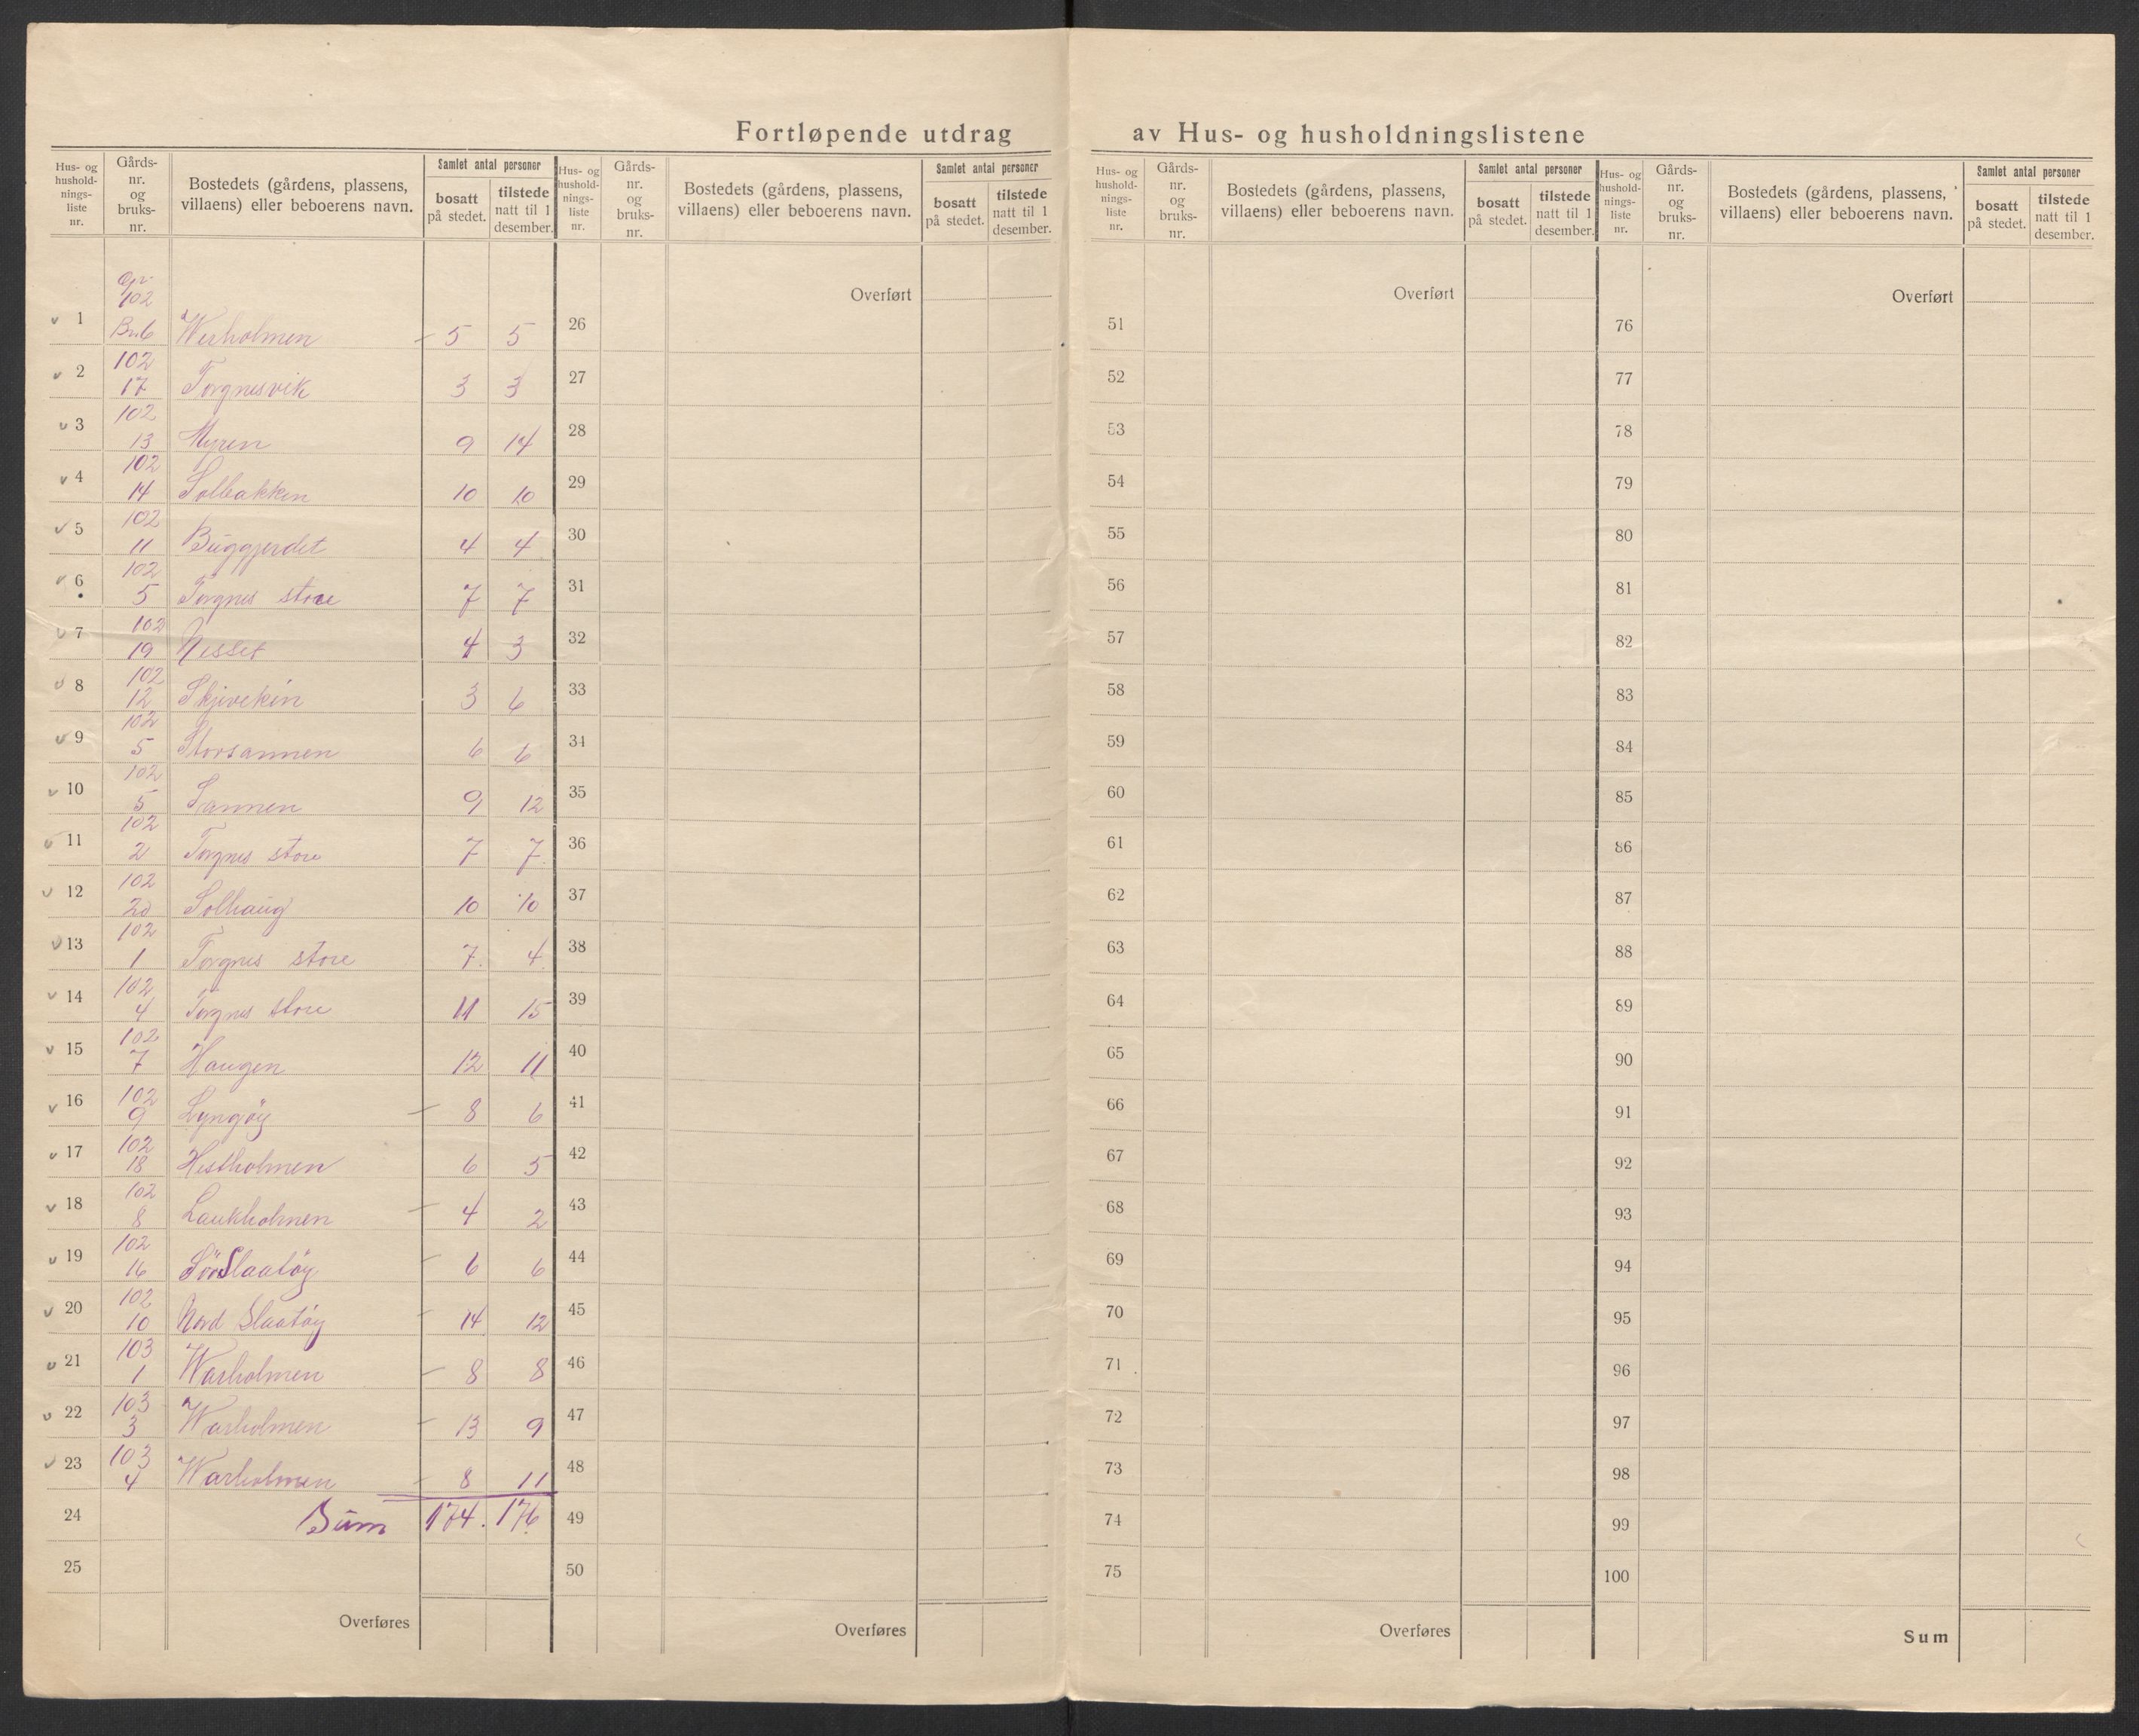 Fortløpende utdrag av Hus- og husholdningslistene
Hus- og husholdnings-liste nr. | Gårds-nr. og bruks-nr. | Bostedets (gårdens, plassens, villaens) eller beboerens navn. | Samlet antal personer | bosatt på stedet. | tilstede natt til 1 desember.
1 | Gnr 102 Bn 6 | Werholmen | 5 | 5
2 | 102 17 | Torgnesvik | 3 | 3
3 | 102 13 | Myren | 9 | 14
4 | 102 14 | Solbakken | 10 | 10
5 | 102 11 | Buggjerdet | 4 | 4
6 | 102 5 | Torgnes store | 7 | 7
7 | 102 19 | Nesset | 4 | 3
8 | 102 12 | Skjivekin | 3 | 6
9 | 102 5 | Storsannen | 6 | 6
10 | 102 5 | Sannen | 9 | 12
11 | 102 2 | Torgnes store | 7 | 7
12 | 102 20 | Solhaug | 10 | 10
13 | 102 1 | Torgnes store | 7 | 4
14 | 102 4 | Torgnes store | 11 | 15
15 | 102 7 | Haugen | 12 | 11
16 | 102 9 | Lyngöy | 8 | 6
17 | 102 18 | Hestholmen | 6 | 5
18 | 102 8 | Laukholmen | 4 | 2
19 | 102 16 | Sör Slaatöy | 6 | 6
20 | 102 10 | Nord Slaatöy | 14 | 12
21 | 103 1 | Warholmen | 8 | 8
22 | 103 3 | Warholmen | 13 | 9
23 | 103 4 | Warholmen | 8 | 11
24 | Sum | 174. | 176
25
Overføres
Hus- og husholdnings-liste nr. | Gårds-nr. og bruks-nr. | Bostedets (gårdens, plassens, villaens) eller beboerens navn. | Samlet antal personer | bosatt på stedet. | tilstede natt til 1 desember.
Overført
26
27
28
29
30
31
32
33
34
35
36
37
38
39
40
41
42
43
44
45
46
47
48
49
50
Overføres
Hus- og hushold-nings-liste nr. | Gårds-nr. og bruks-nr. | Bostedets (gårdens, plassens, villaens) eller beboerens navn. | Samlet antal personer | bosatt på stedet. | tilstede natt til 1 desember.
Overført
51
52
53
54
55
56
57
58
59
60
61
62
63
64
65
66
67
68
69
70
71
72
73
74
75
Overføres
Hus- og hushold-nings-liste nr. | Gårds-nr. og bruks-nr. | Bostedets (gårdens, plassens, villaens) eller beboerens navn. | Samlet antal personer | bosatt på stedet. | tilstede natt til 1 desember.
Overført
76
77
78
79
80
81
82
83
84
85
86
87
88
89
90
91
92
93
94
95
96
97
98
99
100
Sum